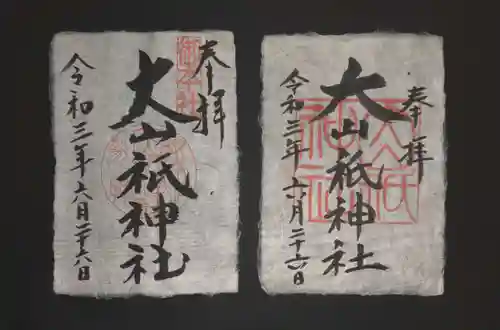 奉拝
大山祇神社
令和三年六月二十六日
奉拝
大山祇神社
令和三年六月二十六日